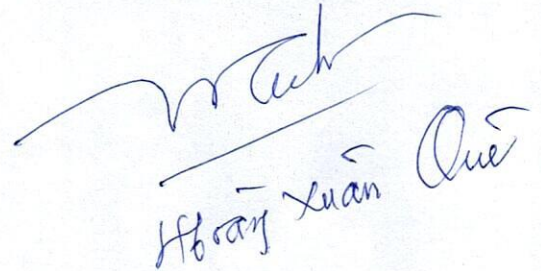 Hoàng Xuân Quế